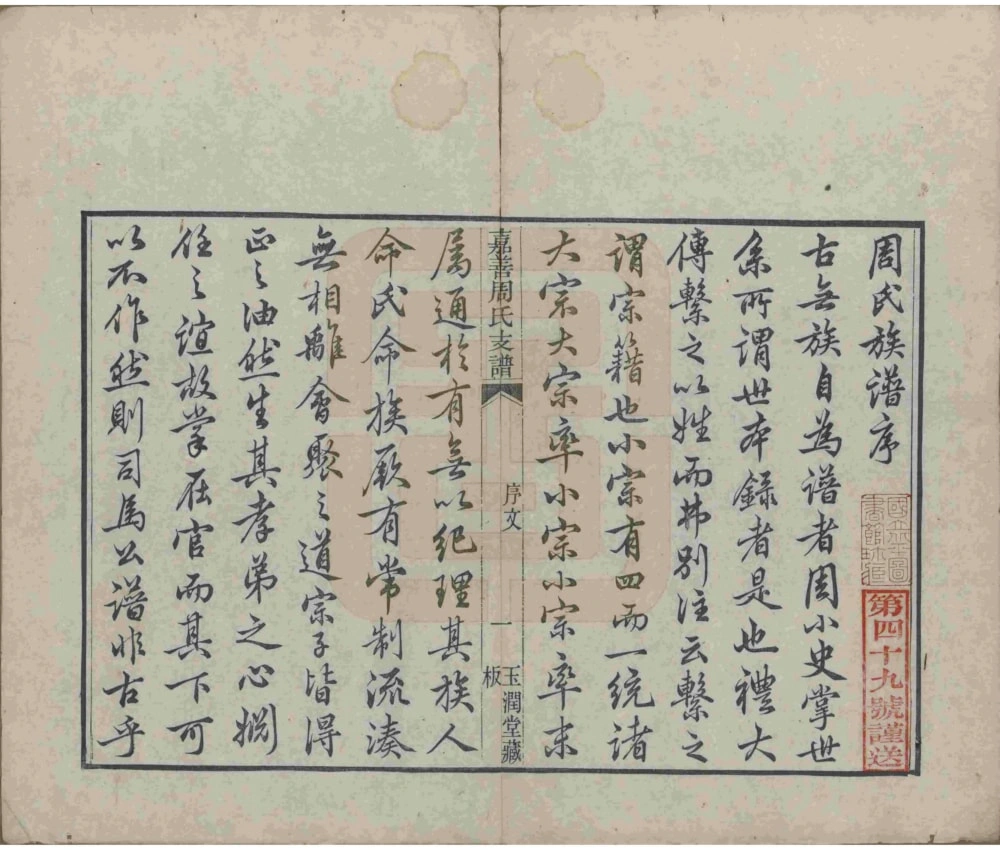 周氏族譜序
古無族自為譜者周小史掌世
系所謂世本錄者是也禮大
傳繫之以姓而弗別注云繫之
謂宗籍也小宗有四而一統諸
大宗大宗率小宗小宗率末
嘉善周氏支譜
序文
一
玉潤堂藏板
属通於有無以紀理其族人
命氏命族厥有常制流湊
無相離會聚之道宗子皆得
正之油然生其孝弟之心媚
任之誼故掌在官而其下可
以不作然則司馬公譜非古乎
國立圖
書館珍
第四十九號謹送